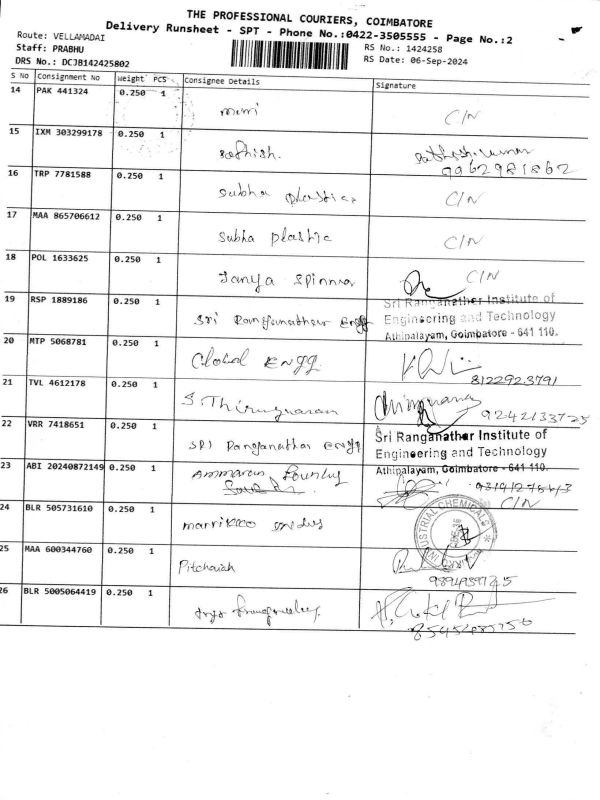 THE PROFESSIONAL COURIERS, COIMBATORE
Delivery Runsheet - SPT - Phone No.:0422-3505555 - Page No.:2
Route: VELLAMADAI
Staff: PRABHU
RS No.: 1424258
DRS No.: DCJB142425802
RS Date: 06-Sep-2024
S No Consignment No Weight PCS Consignee Details Signature
14 PAK 441324 0.250 1
mimi C/N
15 IXM 303299178 0.250 1
sathish. Sathishkumar
9962981862
16 TRP 7781588 0.250 1
Subha plastics C/N
17 MAA 865706612 0.250 1
Subha plastic C/N
18 POL 1633625 0.250 1
Tanya Spinner C/N
19 RSP 1889186 0.250 1
Sri Ranganathar Engg
Sri Ranganather Institute of
Engineering and Technology
Athipalayam, Coimbatore - 641 110.
20 MTP 5068781 0.250 1
Global ENGG
8122923791
21 TVL 4612178 0.250 1
S. Thirugnanam
9242133725
22 VRR 7418651 0.250 1
SRI Ranganathar Engg
Sri Ranganather Institute of
Engineering and Technology
Athipalayam, Coimbatore - 641 110.
23 ABI 20240872149 0.250 1
Ammarun Foundry
C/N
24 BLR 505731610 0.250 1
Marrikkco Indus
INDUSTRIAL CHEMICALS
25 MAA 600344760 0.250 1
Pitchaiah
26 BLR 5005064419 0.250 1